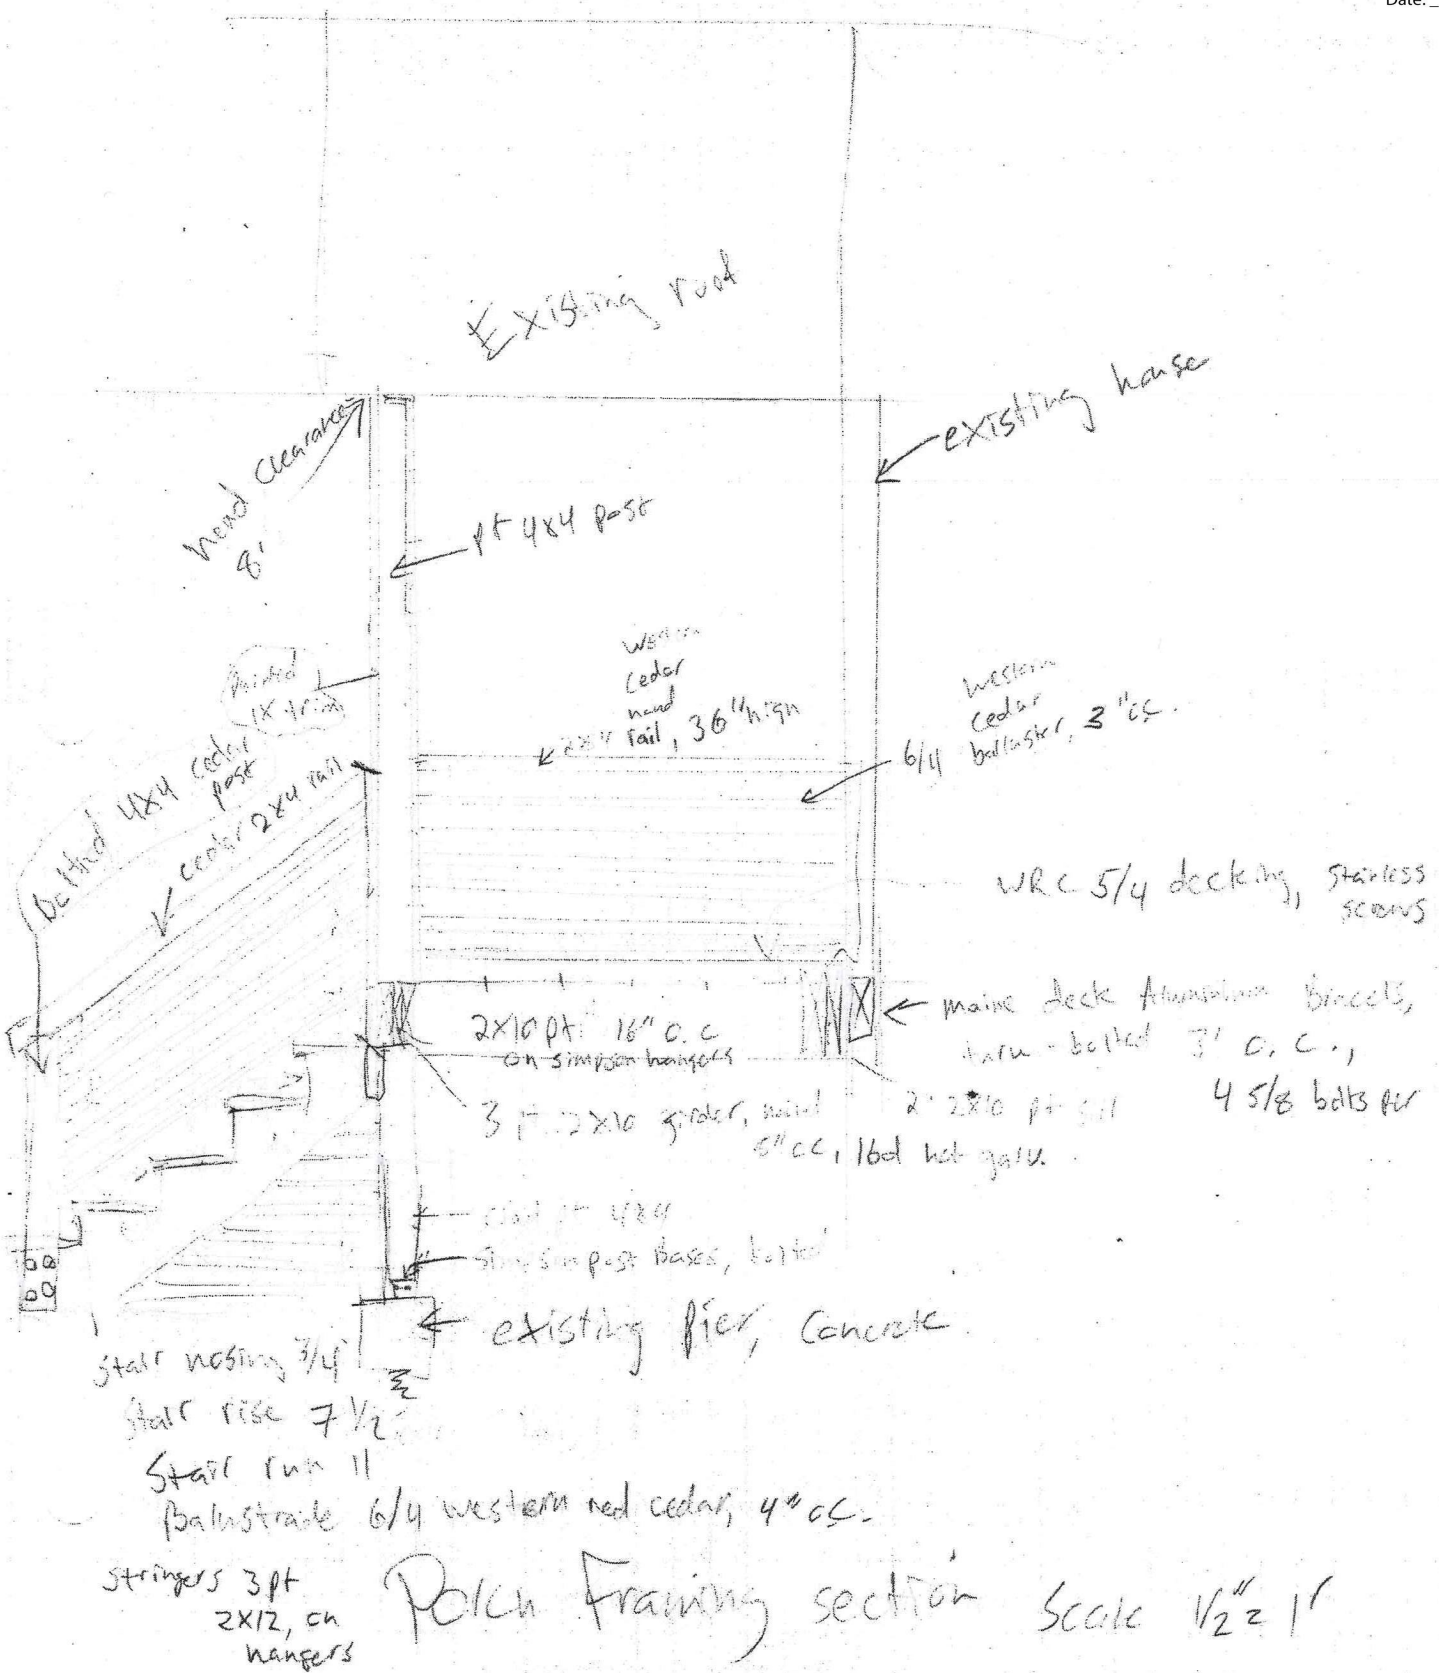 Date: _
Existing roof
existing house
head clearance
8'
pt 4x4 post
painted
1x trim
western
cedar
hand
2x4 rail, 36" high
western
cedar
6/4 balluster, 3" oc.
Bolted 4x4 cedar
post
cedar 2x4 rail
WRC 5/4 decking, stainless
screws
2x10 pt 16" o.c
on simpson hangers
maine deck Aluminum Bracets,
thru-bolted 3' o.c.,
4 5/8 bolts per
3 pt 2x10 girder, nailed
6" cc, 16d hot galv.
2 2x10 pt sill
pt 4x4
simpson post Bases, bolted
existing pier, concrete
stair nosing 3/4
stair rise 7 1/2
stair run 11
Balustrade 6/4 western red cedar, 4" oc.
stringers 3 pt
2x12, on
hangers
Porch Framing section Scale 1/2" = 1'